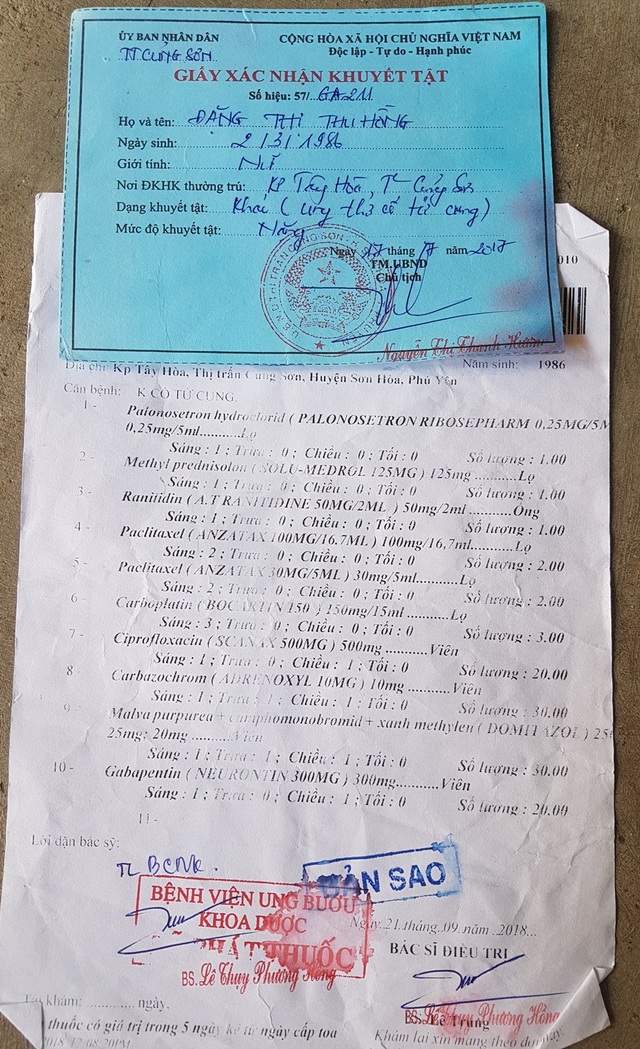 ỦY BAN NHÂN DÂN
TT CỦNG SƠN
CỘNG HÒA XÃ HỘI CHỦ NGHĨA VIỆT NAM
Độc lập - Tự do - Hạnh phúc
GIẤY XÁC NHẬN KHUYẾT TẬT
Số hiệu: 57/
Họ và tên: ĐẶNG THỊ THU HỒNG
Ngày sinh: 2/3/1986
Giới tính: Nữ
Nơi ĐKHK thường trú: Kp Tây Hòa, TT Củng Sơn
Dạng khuyết tật: Khác (ung thư cổ tử cung)
Mức độ khuyết tật: Nặng
Ngày tháng 7 năm 2017
TM.UBND
Chủ tịch
Nguyễn Thị Thanh Hương
010
Địa chỉ: Kp Tây Hòa, Thị trấn Củng Sơn, Huyện Sơn Hòa, Phú Yên
Năm sinh: 1986
Căn bệnh: K CỔ TỬ CUNG.
1 - Palonosetron hydroclorid ( PALONOSETRON RIBOSEPHARM 0,25MG/5M
0,25mg/5ml..........Lọ
Sáng : 1 ; Trưa : 0 ; Chiều : 0 ; Tối : 0 Số lượng : 1.00
2 - Methyl prednisolon ( SOLU-MEDROL 125MG ) 125mg ..........Lọ
Sáng : 1 ; Trưa : 0 ; Chiều : 0 ; Tối : 0 Số lượng : 1.00
3 - Ranitidin ( A.T RANITIDINE 50MG/2ML ) 50mg/2ml ..........Ống
Sáng : 1 ; Trưa : 0 ; Chiều : 0 ; Tối : 0 Số lượng : 1.00
4 - Paclitaxel ( ANZATAX 100MG/16,7ML ) 100mg/16,7ml..........Lọ
Sáng : 2 ; Trưa : 0 ; Chiều : 0 ; Tối : 0 Số lượng : 2.00
5 - Paclitaxel ( ANZATAX 30MG/5ML ) 30mg/5ml..........Lọ
Sáng : 2 ; Trưa : 0 ; Chiều : 0 ; Tối : 0 Số lượng : 2.00
6 - Carboplatin ( BOCARTIN 150 ) 150mg/15ml ..........Lọ
Sáng : 3 ; Trưa : 0 ; Chiều : 0 ; Tối : 0 Số lượng : 3.00
7 - Ciprofloxacin ( SCANAX 500MG ) 500mg ..........Viên
Sáng : 1 ; Trưa : 0 ; Chiều : 1 ; Tối : 0 Số lượng : 20.00
8 - Carbazochrom ( ADRENOXYL 10MG ) 10mg ..........Viên
Sáng : 1 ; Trưa : 1 ; Chiều : 1 ; Tối : 0 Số lượng : 30.00
9 - Malva purpurea + camphomonobromid + xanh methylen ( DOMITAZOL ) 250
25mg: 20mg ..........Viên
Sáng : 1 ; Trưa : 1 ; Chiều : 1 ; Tối : 0 Số lượng : 30.00
10 - Gabapentin ( NEURONTIN 300MG ) 300mg..........Viên
Sáng : 1 ; Trưa : 0 ; Chiều : 1 ; Tối : 0 Số lượng : 20.00
11 -
Lời dặn bác sỹ:
BẢN SAO
BỆNH VIỆN UNG BƯỚU
KHOA DƯỢC
THUỐC
BS. Lê Thụy Phương Hồng
Ngày.21.tháng .09.năm .2018...
BÁC SĨ ĐIỀU TRỊ
BS. Lê Thụy Phương Hồng
Lê Trung
Tái khám: ............ ngày.
thuốc có giá trị trong 5 ngày kể từ ngày cấp toa
Khám lại xin mang theo đơn này.